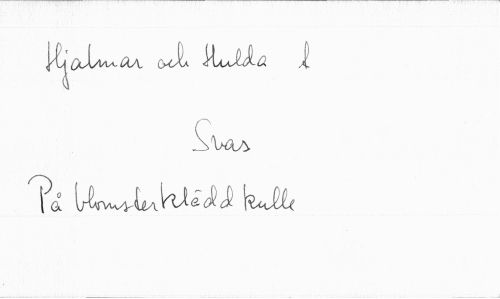 Hjalmar och Hulda
Svas
På blomsterklädd kulle